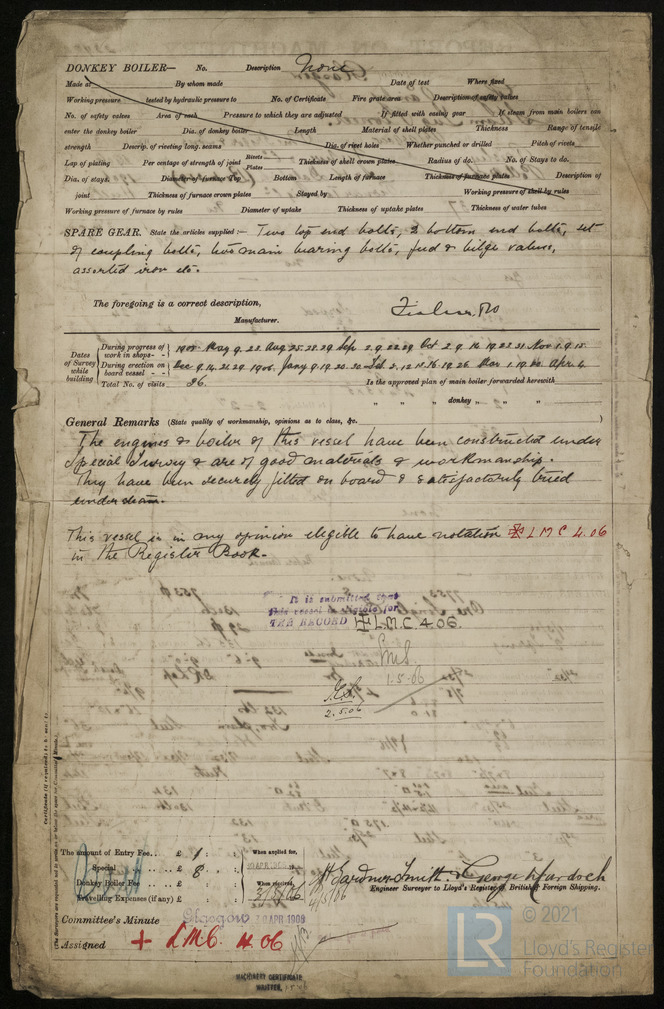 DONKEY BOILER— No. Description None
Made at By whom made Date of test Where fixed
Working pressure tested by hydraulic pressure to No. of Certificate Fire grate area Description of safety valves
No. of safety valves Area of each Pressure to which they are adjusted If fitted with easing gear If steam from main boilers can
enter the donkey boiler Dia. of donkey boiler Length Material of shell plates Thickness Range of tensile
strength Descrip. of riveting long. seams Dia. of rivet holes Whether punched or drilled Pitch of rivets
Lap of plating Per centage of strength of joint Rivets Plates Thickness of shell crown plates Radius of do. No. of Stays to do.
Dia. of stays. Diameter of furnace Top Bottom Length of furnace Thickness of furnace plates Description of
joint Thickness of furnace crown plates Stayed by Working pressure of shell by rules
Working pressure of furnace by rules Diameter of uptake Thickness of uptake plates Thickness of water tubes
SPARE GEAR. State the articles supplied:— Two top end bolts, 2 bottom end bolts, set
of coupling bolts, two main bearing bolts, feed & bilge valves,
assorted iron etc.
The foregoing is a correct description,
Manufacturer.
Dates of Survey while building
During progress of work in shops - - 1905. May 9. 22. Aug 25. 28. 29 Sep 2. 9. 22. 29 Oct 2. 9. 16. 19. 25. 31 Nov 1. 9. 15
During erection on board vessel - - Dec 9. 14. 21. 29 1906. Jany 9. 19. 20. 30 Feb 2. 12. 15. 16. 19. 26 Mar 1. 19. 20 Apr 4
Total No. of visits 36. Is the approved plan of main boiler forwarded herewith
" " " donkey " " "
General Remarks (State quality of workmanship, opinions as to class, &c.
The engines & boiler of this vessel have been constructed under
Special Survey & are of good materials & workmanship.
They have been securely fitted on board & satisfactorily tried
under steam.
This vessel is in my opinion eligible to have notation L M C 4. 06
in the Register Book.
It is submitted that
this vessel is eligible for
THE RECORD L.M.C. 4. 06.
1. 5. 06
2. 5. 06
Certificate (if required) to be sent to
The amount of Entry Fee . . £ 1
Special . . £ 8
Donkey Boiler Fee . . £
Travelling Expenses (if any) £
When applied for,
When received,
3/5/06
4/5/06
J H Gardner Smith & George Murdoch
Engineer Surveyor to Lloyd's Register of British & Foreign Shipping.
Committee's Minute Glasgow 30 APR 1906
Assigned + L M C. 4. 06
MACHINERY CERTIFICATE
WRITTEN.
© 2021
LR Lloyd's Register
Foundation